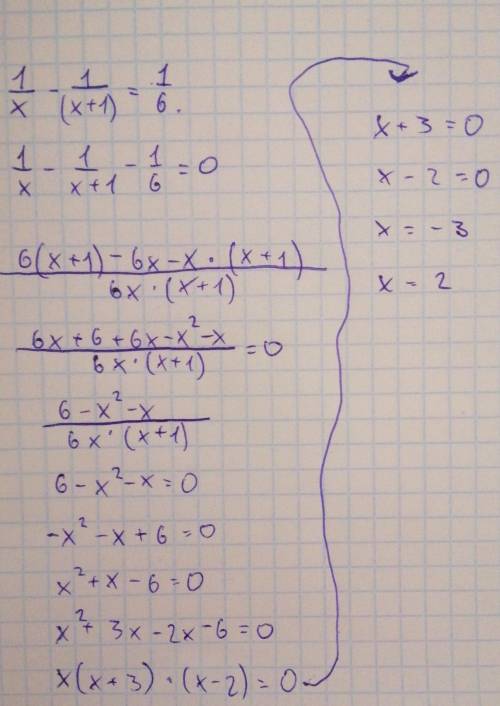 1/x - 1/(x+1) = 1/6.
1/x - 1/x+1 - 1/6 = 0
6(x+1) - 6x - x · (x+1) / 6x · (x+1)
6x + 6 + 6x - x² - x / 6x · (x+1) = 0
6 - x² - x / 6x · (x+1)
6 - x² - x = 0
-x² - x + 6 = 0
x² + x - 6 = 0
x² + 3x - 2x - 6 = 0
x(x+3) · (x-2) = 0
x + 3 = 0
x - 2 = 0
x = -3
x = 2